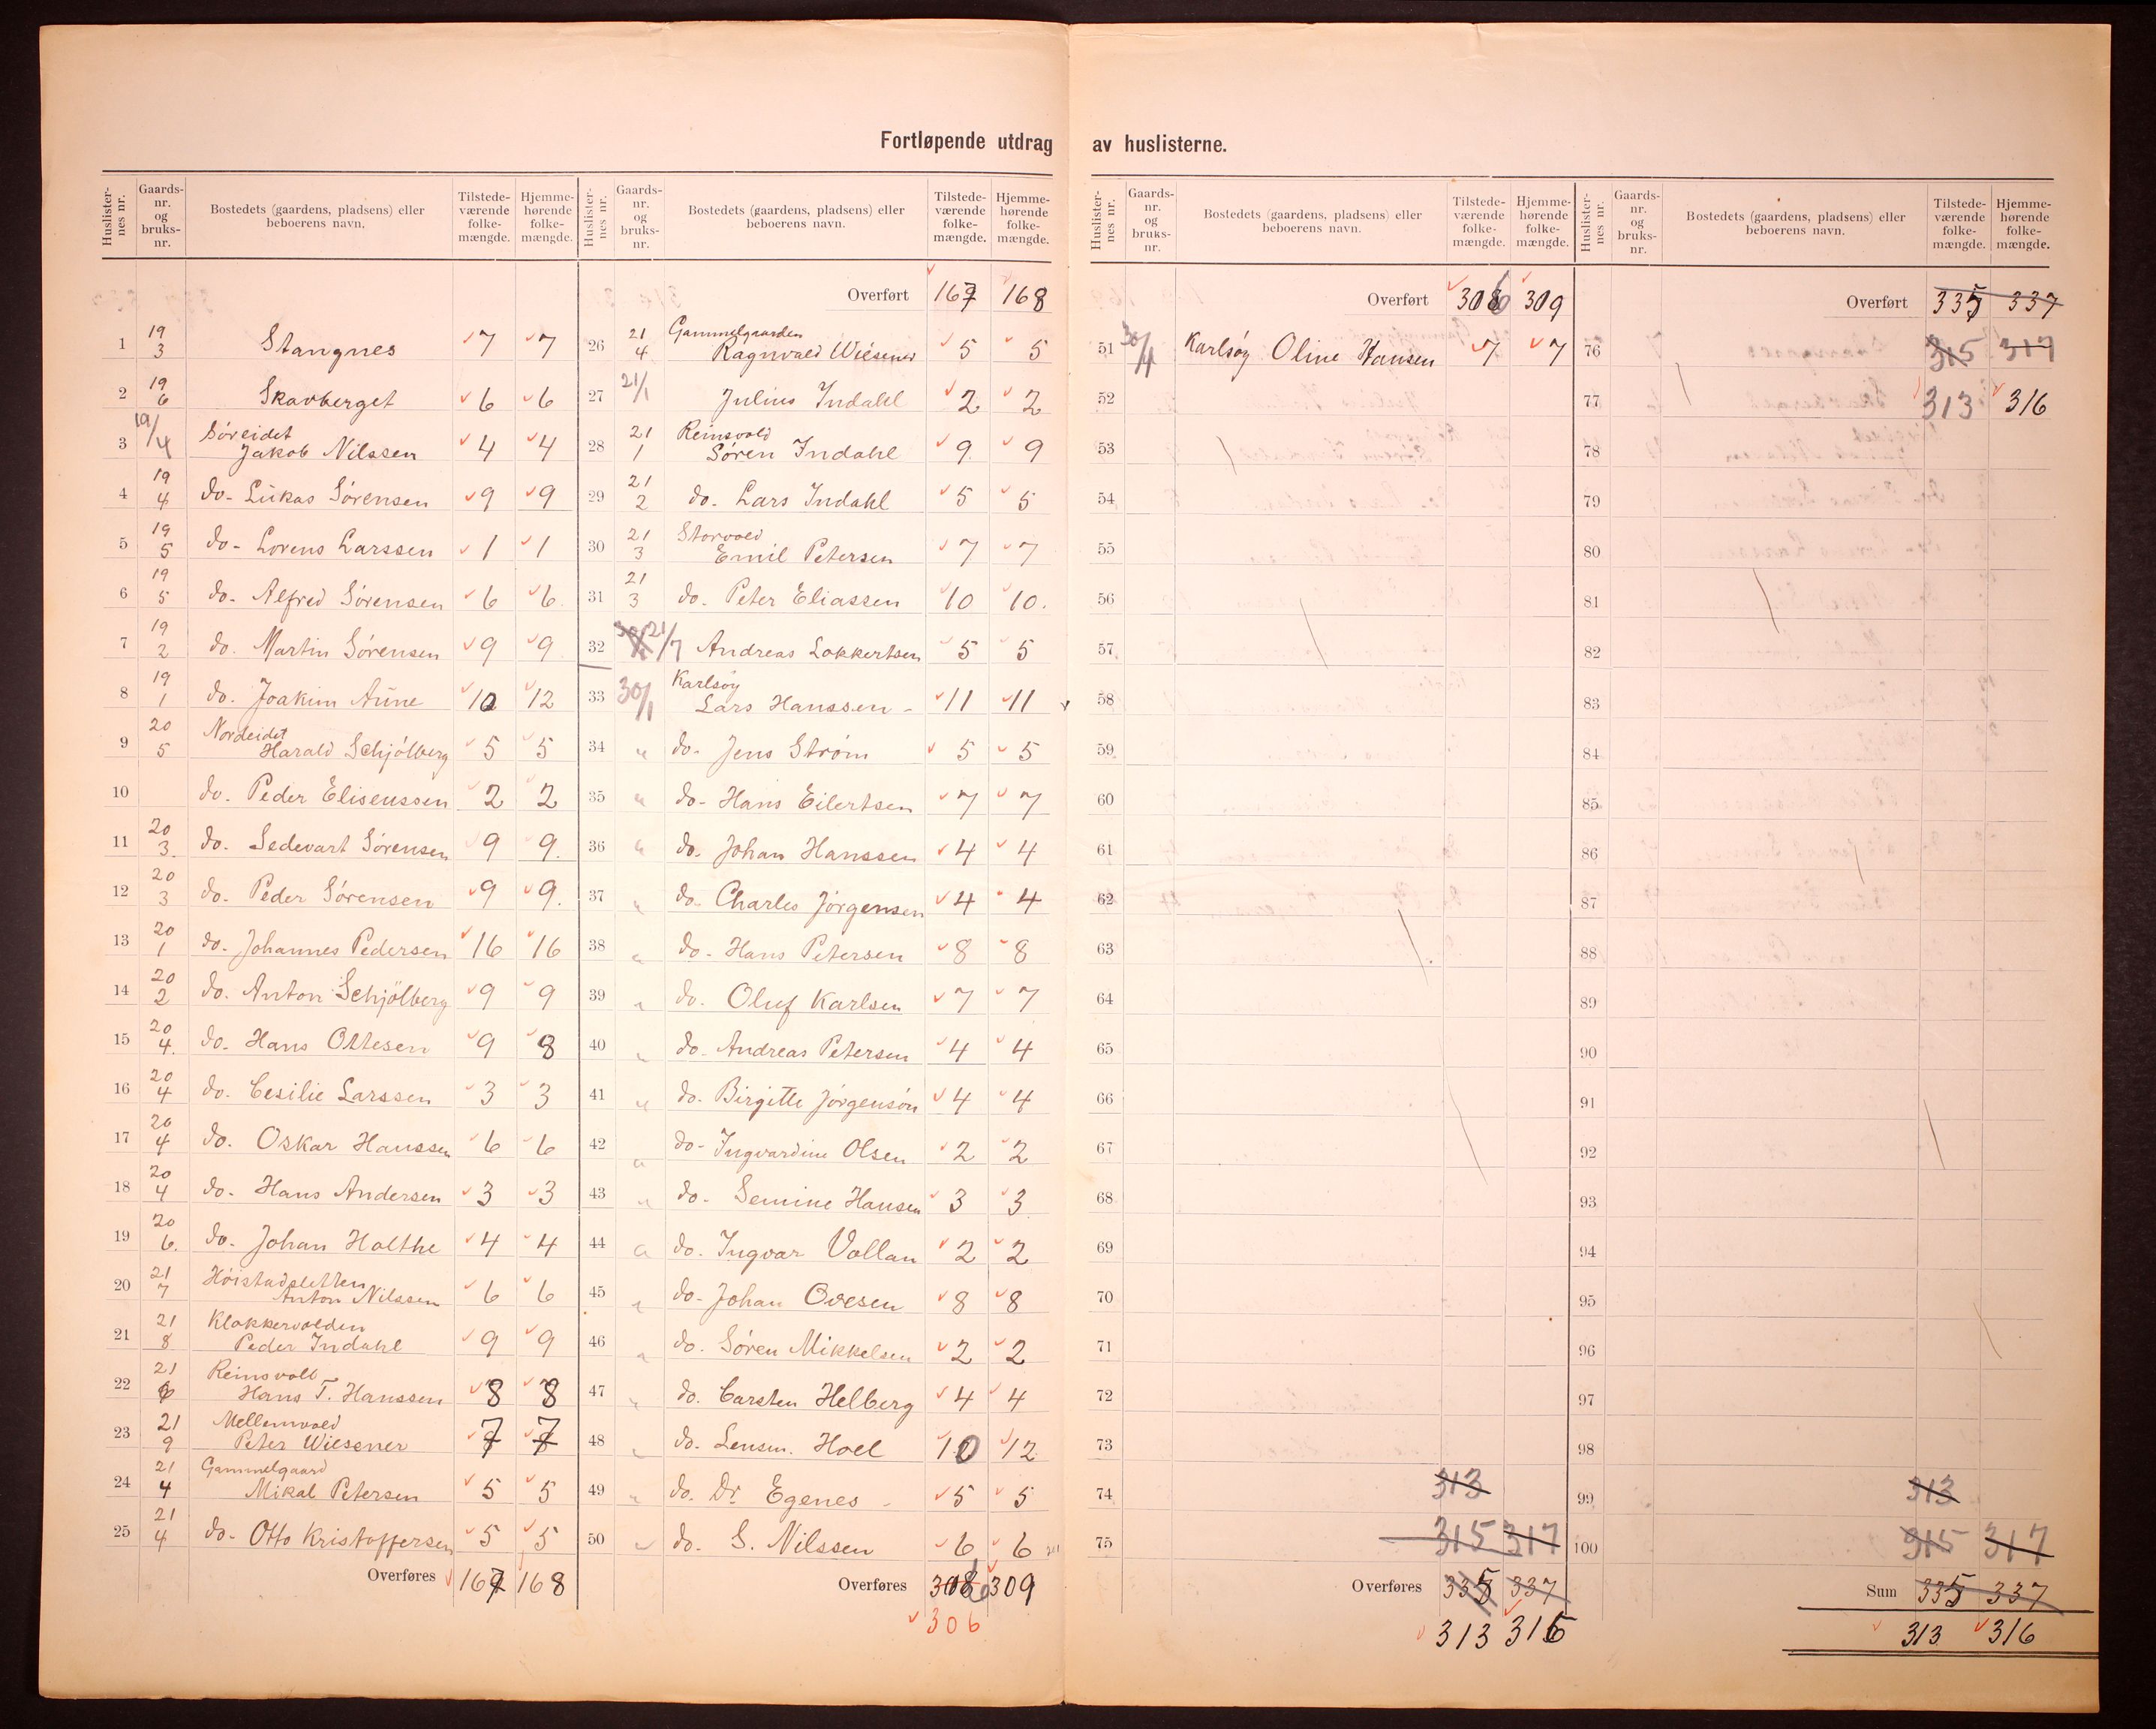 Fortløpende utdrag av huslisterne.
Huslister-nes nr. Gaards-nr. og bruks-nr. Bostedets (gaardens, pladsens) eller beboerens navn. Tilstede-værende folke-mængde. Hjemme-hørende folke-mængde.
1 19/3 Stangnes 7 7
2 19/6 Skavberget 6 6
3 19/4 Søreidet Jakob Nilssen 4 4
4 19/4 do- Lukas Sørensen 9 9
5 19/5 do- Lorens Larssen 1 1
6 19/5 do- Alfred Sørensen 6 6
7 19/2 do. Martin Sørensen 9 9
8 19/1 do. Joakim Aune 10 12
9 20/5 Nordeidet Harald Schjølberg 5 5
10 do. Peder Eliseussen 2 2
11 20/3 do. Sedevart Sørensen 9 9
12 20/3 do- Peder Sørensen 9 9
13 20/1 do- Johannes Pedersen 16 16
14 20/2 do. Anton Schjölberg 9 9
15 20/4 do- Hans Ottesen 9 8
16 20/4 do. Cesilie Larssen 3 3
17 20/4 do. Oskar Hanssen 6 6
18 20/4 do- Hans Andersen 3 3
19 20/6 do- Johan Holthe 4 4
20 21/7 Høistadsletten Anton Nilssen 6 6
21 21/8 Klokkervolden Peder Indahl 9 9
22 21/6 Reinsvoll Hans T. Hanssen 8 8
23 21/9 Mellemvold Peter Wiesener 7 7
24 21/4 Gammelgaard Mikal Petersen 5 5
25 21/4 do- Otto Kristoffersen 5 5
Overføres 167 168
Huslister-nes nr. Gaards-nr. og bruks-nr. Bostedets (gaardens, pladsens) eller beboerens navn. Tilstede-værende folke-mængde. Hjemme-hørende folke-mængde.
Overført 167 168
26 21/4 Gammelgaarden Ragnvald Wiesener 5 5
27 21/1 Julius Indahl 2 2
28 21/1 Reinsvold Søren Indahl 9 9
29 21/2 do. Lars Indahl 5 5
30 21/3 Storvold Emil Petersen 7 7
31 21/3 do. Peter Eliassen 10 10.
32 21/7 Andreas Lokkertsen 5 5
33 30/1 Karlsøy Lars Hanssen - 11 11
34 " do- Jens Strøm 5 5
35 " do- Hans Eilertsen 7 7
36 " do. Johan Hanssen 4 4
37 " do- Charles Jørgensen 4 4
38 " do- Hans Petersen 8 8
39 " do. Oluf Karlsen 7 7
40 " do- Andreas Petersen 4 4
41 " do. Birgitte Jørgensøn 4 4
42 " do- Ingvardine Olsen 2 2
43 " do- Semine Hansen 3 3
44 " do. Ingvar Vollan 2 2
45 " do- Johan Ovesen 8 8
46 " do. Søren Mikkelsen 2 2
47 " do. Carsten Helberg 4 4
48 " do- Lensm. Hoel 10 12
49 " do. Dr. Egenes - 5 5
50 " do. S. Nilssen 6 6
Overføres 306 309
306
Huslister-nes nr. Gaards-nr. og bruks-nr. Bostedets (gaardens, pladsens) eller beboerens navn. Tilstede-værende folke-mængde. Hjemme-hørende folke-mængde.
Overført 306 309
51 30/1 Karlsøy Oline Hansen 7 7
52
53
54
55
56
57
58
59
60
61
62
63
64
65
66
67
68
69
70
71
72
73
74 313
75 315 317
Overføres 335 337
313 316
Huslister-nes nr. Gaards-nr. og bruks-nr. Bostedets (gaardens, pladsens) eller beboerens navn. Tilstede-værende folke-mængde. Hjemme-hørende folke-mængde.
Overført 335 337
76 315 317
77 313 316
78
79
80
81
82
83
84
85
86
87
88
89
90
91
92
93
94
95
96
97
98
99 313
100 315 317
Sum 335 337
313 316